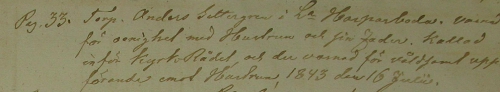 Pag. 33. Torp. Anders Settergren i La Harparboda. varnad
för oenighet med Hustrun och sin fader. Kallad
inför Kyrko Rådet, och der varnad för våldsamt upp
förande emot Hustrun, 1843 den 16 Julii.